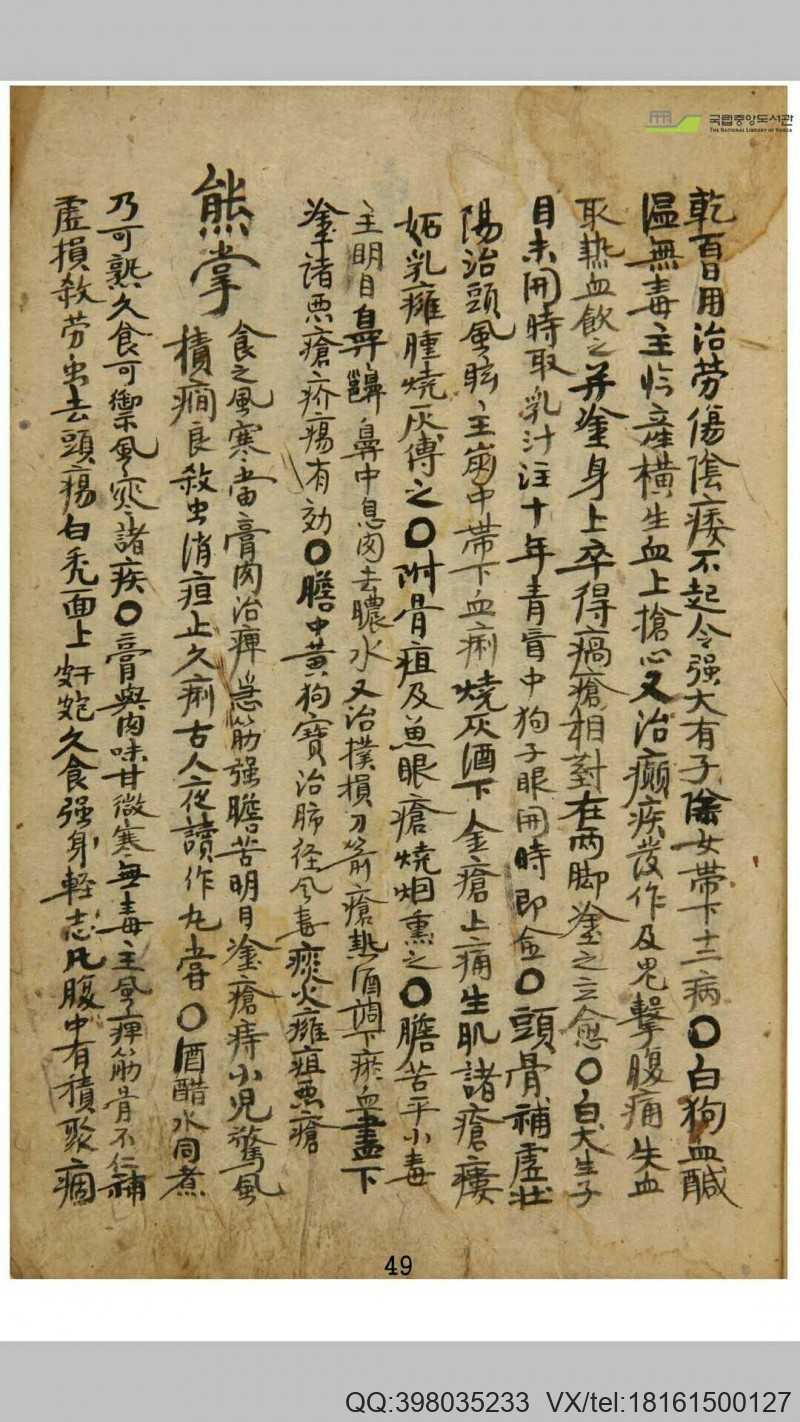 국립중앙도서관
THE NATIONAL LIBRARY OF KOREA
乾百日用治劳傷陰痿不起令强大有子除女帶下十二病〇白狗血醎
温無毒主临產橫生血上搶心又治癲疾發作及鬼擊腹痛失血
取热血飲之并塗身上卒得瘑瘡相對在两脚塗之立愈〇白犬生子
目未開時取乳汁注十年青盲中狗子眼開時即愈〇頭骨補虛壮
陽治頭風眩主崩中帶下血痢燒灰酒下金瘡止痛生肌諸瘡瘻
妬乳癰腫燒灰傅之〇附骨疽及魚眼瘡燒烟熏之〇膽苦平小毒
主明目鼻齆鼻中息肉去膿水又治撲損刀箭瘡热酒調下瘀血盡下
塗諸悪瘡疥瘍有効〇膽中黄狗寶治肺经風毒痰火癰疽悪瘡
熊掌
食之風寒當膏肉治痺急筋强膽苦明目塗瘡痔小児驚風
積癇良殺虫消疸止久痢古人夜讀作丸嘗〇酒醋水同煮
乃可熟久食可禦風寒諸疾〇膏與肉味甘微寒無毒主風痺筋骨不仁補
虛損殺劳虫去頭瘍白秃面上皯皰久食强身軽志凡腹中有積聚痼
49
QQ:398035233 VX/tel:18161500127